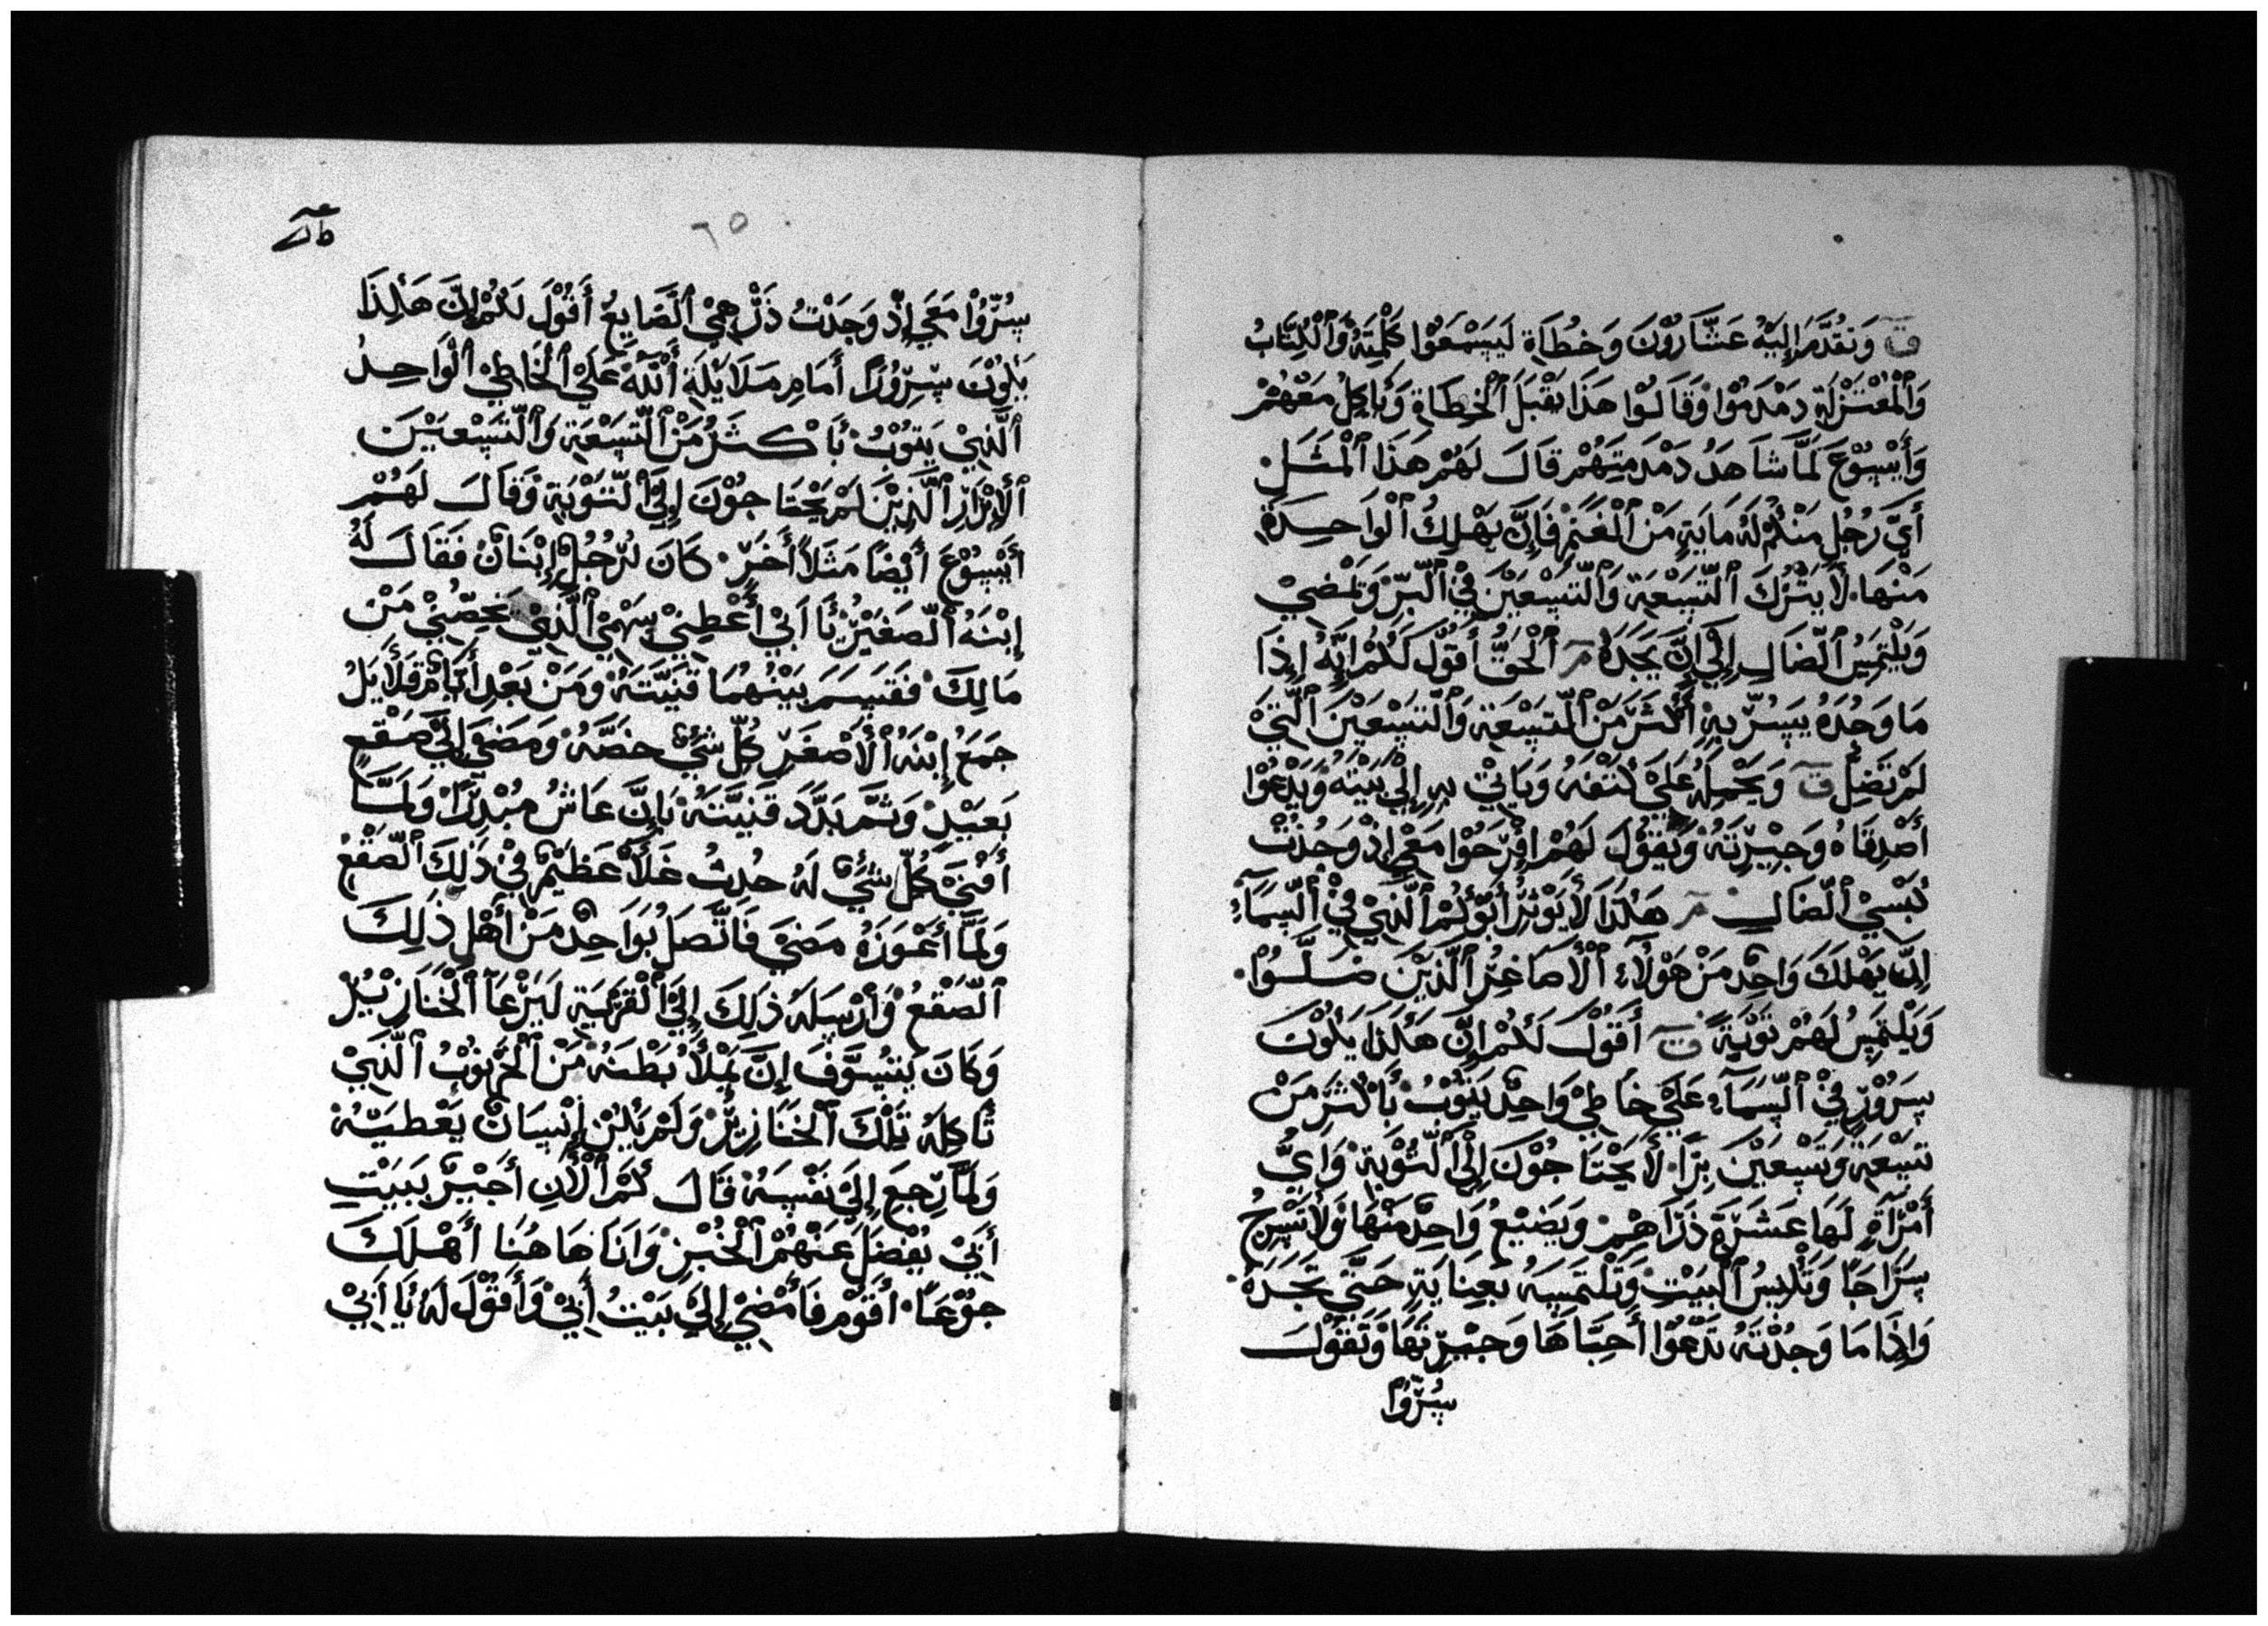 ق وَتقُدَّمَ إِليْهُ عَشَّارُوْنَ وَخُطَاَة لَيَسْمَعَوْا كَلْمِتَهُ وَٱلْكِتَابُ
وَٱلْمُعْتَزْلَة دَمْدَمُوْا وَقَالَوْا هَذَا يَقْبَلَ ٱلْخطَاة وَيَاكِلُ مَعْهُمْ
وَأَيْسُوْعَ لَمَّا شَاهَدُ دَمْدَمِتَهُمْ قَالَ لَهُمْ هَذَا ٱلْمَثَلِ
أَيّ رَجُلٍ مَنْكُمْ لَهُ مَايَةٍ مَنْ ٱلْغَنَمْ فَإِنَّ يَهْلِكُ ٱلْوَاحِدَة
مَنْهَا لَا يَتْرُكَ ٱلْتِّسْعَة وَٱلْتّسْعَيْنَ فِيْ ٱلْبَرّ وَيَمْضيْ
وَيَلْتَمِسُ ٱلْضَالِ إِلَيْ إِنَّ يَجَدَهُ مر ٱلْحَقُّ أَقُوْلَ لَكُمْ إِنَّهُ إِذَا
مَا وَجُدَهُ يَسُرّ بِهِ أَكْثَرَ مَنْ ٱلْتِسْعَة وَٱلْتسْعَيْنَ ٱلَّتَيْ
لَمْ تَضِلّ ق وَيَحْمِلهُ عَلَيْ كَتفَهُ وَيَاتيْ بهِ إِليْ بَيْتهُ وَيَدْعُوْا
أَصْدِقَاهُ وَجِيْرِتهُ وَيَقُوْلَ لَهُمْ افْرَحُوْا مَعْي إِذْ وَجُدْتُ
كَبْشيْ ٱلْضَالِ مر هَكَذَا لَا يَوْثرُ أَبُوْكُمْ ٱلَّذِيْ فيْ ٱلْسّمَآءِ
إِنّ يَهْلَكَ وَاحِدٍ مَنْ هَوْلَآءِ ٱلْأَصَاغِرُ ٱلَّذِيْنَ ضَلَّوْا
وَيَلْتَمِسُ لَهُمْ تَوْبَةً ق أَقُوْلَ لَكُمْ إِنّ هَكَذَا يَكُوْنَ
سَرُوْرٍ فيْ ٱلْسَّمَآءِ عَلَيْ خَاطِيْ وَاحِدٍ يَتُوْبُ بَأَكْثَرَ مَنْ
تسْعَة وَتسْعَيْنَ بِرًا لَا يَحْتَاجُوْنَ إِليْ ٱلْتَّوْبَة وَايُّ
أَمْرَآةٍ لَهَا عَشَرَة دَرَاهِمْ وَيَضيْعُ وَاحِدٍ مَنْهَا وَلَا تَسْرِجُ
سَرَاجًا وَتَكْنِسُ ٱلْبَيْتِ وَتَلْتَمِسَهُ بَعِنَايَةٍ حَتَّيْ تَجَدَهُ
وَإِذَا مَا وَجُدْتَهُ تَدْعُوْا أَحِبَّاهَا وَجِيْرِتهَا وَتَقوْلَ
سُرُّوْا
٦٥
سُرُّوْا مَعَي إِذْ وَجَدْتُ دَرْهَمْيْ ٱلْضَّايعُ أَقُوْلَ لَكُمْ إِنَّ هَكَذَا
يَكُوْنَ سُرُوْرًا أَمَامِ مَلَايْكَةِ أَللّهُ عَلَيْ ٱلْخَاطِيْ ٱلْوَاحِدُ
ٱلَّذِيْ يَتُوْبُ بَأَكْثَرُ مَنْ ٱلْتِّسْعَة وَٱلْتَسْعَيْنَ
ٱلْأَبْرَارِ ٱلَّذِيْنَ لَمْ يَحْتَاجُوْنَ إِليَ ٱلْتَّوْبَةِ وَقَالَ لَهُمْ
أَيْسُوْعَ أَيْضًا مَثَلاً أَخَرَ كَانَ لَرُجُلٍ إِبْنَانْ فَقَالَ لَهُ
إِبْنَهُ ٱلْصّغَيْرُ يَا اَبيْ أَعْطِنيْ سَهْمْيْ ٱلَّذِيْ يَخِصّنيْ مَنْ
مَالِكَ فَقَسَمَ بَيْنهُمَا قَنِيَّتَهُ وَمَنْ بَعْدِ أَيَّامٍ قَلَايَلُ
جَمَعُ إِبْنَهُ ٱلْأَصْغَرِ كُلّ شَيْءٍ خَصَّهُ وَمَضَيْ إِليْ صَقْعٍ
بَعَيْدٍ وَثَمَّ بَدَّدَ قَنِيَّتَهُ بَإِنَّ عَاشُ مُبْذِرًا وَلَمَّا
أَفْنَيْ كُلّ شَيْءٍ لَهُ حُدِثُ غَلَآ عَظَيْمٍ فيْ ذَلِكَ ٱلْصّقْعُ
وَلَمَّا أَعْوَزَهُ مَضَيْ فَاتَّصَلُ بُوَاحِدٍ مَنْ أَهْلِ ذَلِكَ
ٱلْصّقْعُ وَأَرْسَلَهُ ذَلِكَ إِليَ ٱلْقَرْيَة لَيَرْعَآ ٱلْخَنَازيْرُ
وَكَانَ يَتشَوَّفَ إِنَّ يَمْلَأُ بَطْنهُ مَنْ ٱلْخَرْنُوْبُ ٱلَّذَيْ
تَأكِلهُ تَلْكَ ٱلْخَنَازيْرُ وَلَمْ يَكُنْ إِنْسَانْ يَعْطيْهُ
وَلَمَّا رَجعَ إِليَ نَفْسَهُ قَالَ كَمْ ٱلْأَنِ أَجَيْرٍ بَبَيْتِ
أَبيْ يَفْضَلَ عَنْهُمْ ٱلْخُبْزِ وَانَا هَا هُنَا أَهْلَكَ
جوْعًا أَقُوْمِ فَأَمْضيْ إِليَ بَيْتُ أَبيْ وَأَقُوْلَ لَهُ يَا أَبيْ